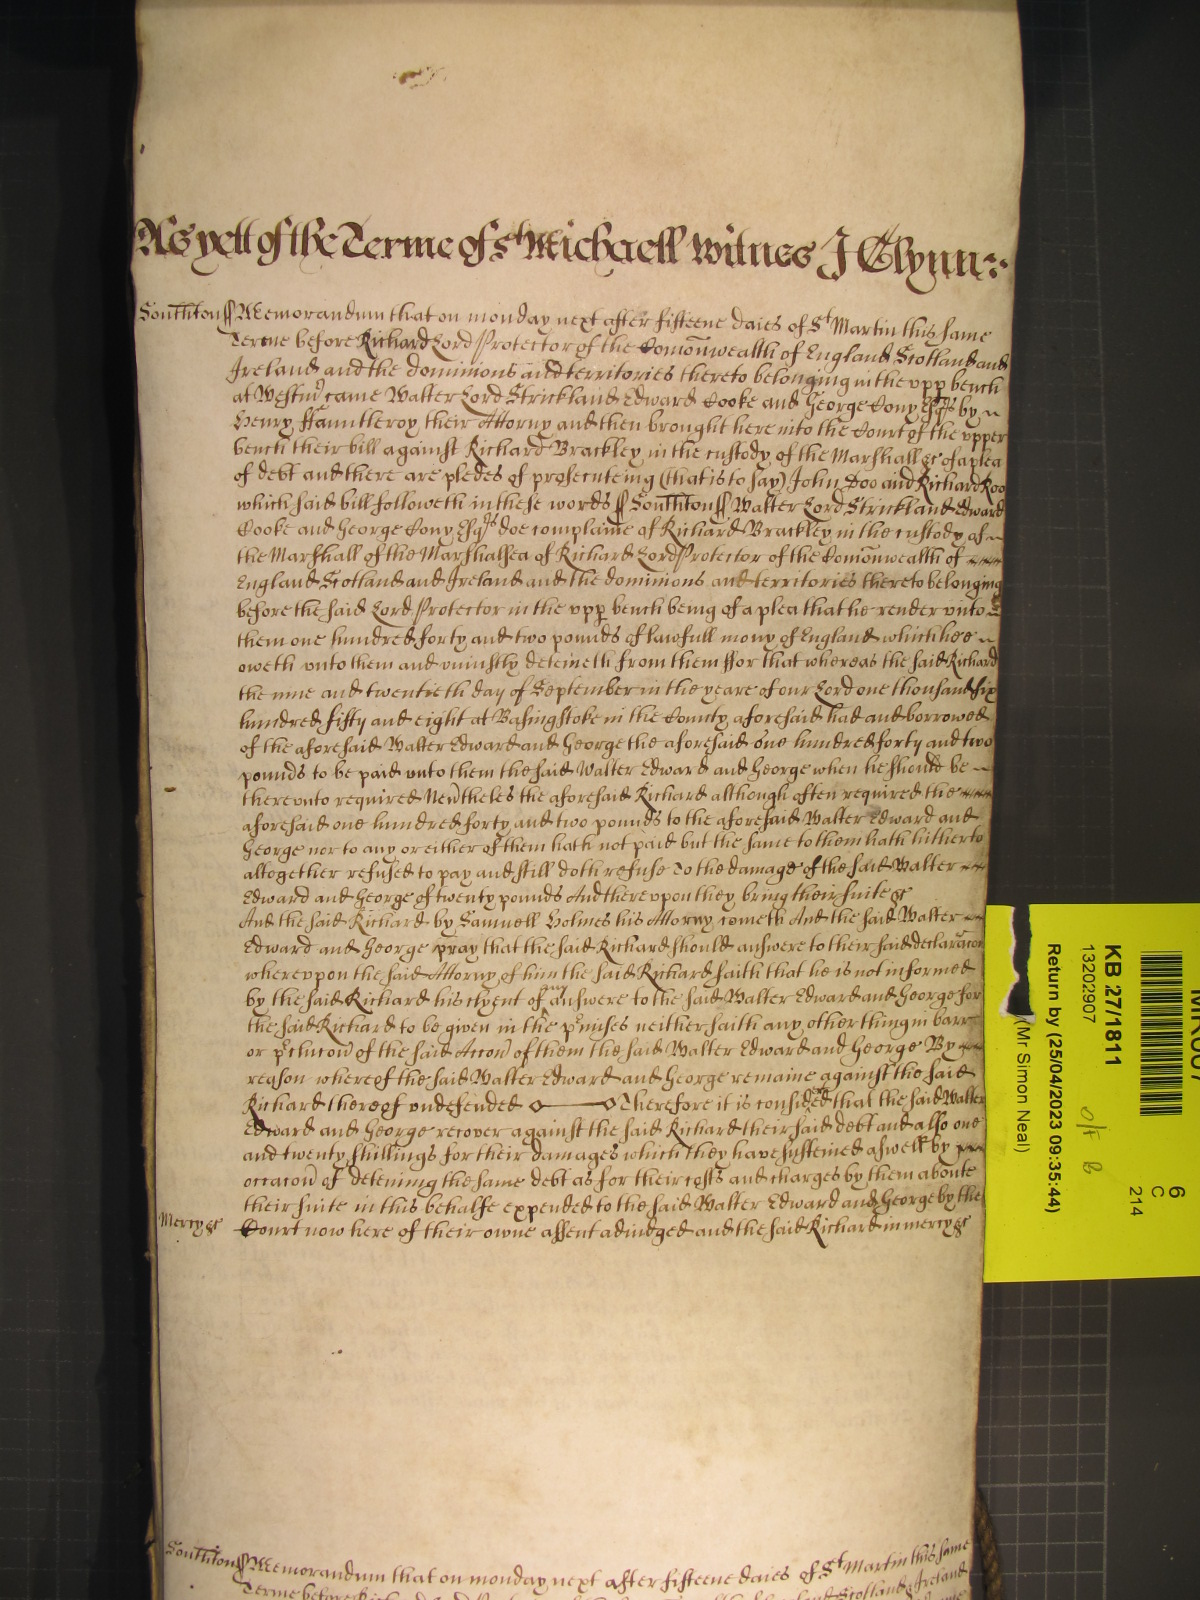 As yett of the Terme of St Michaell Witnes J Glynn
Southton ss Memorandum that on monday next after fifteene daies of St Martin this same
Terme before Richard Lord Protector of the Comōnwealth of England Scotland and
Ireland and the dominions and territories thereto belonging in the vpp bench
at Westmr came Walter Lord Strickland Edward Cooke and George Cony Esqrs by
Henry ffauntleroy their Attorny and then brought here into the Court of the vpper
bench their bill against Richard Brackley in the custody of the Marshall &c of a plea
of debt and there are pledes of prosecuteing (that is to say) John Doo and Richard Roo
which said bill followeth in these words ss Southton ss Walter Lord Strickland Edward
Cooke and George Cony Esqrs doe complaine of Richard Brackley in the custody of
the Marshall of the Marshalsea of Richard Lord Protector of the Comōnwealth of
England Scotland and Ireland and the dominions and territories thereto belonging
before the said Lord Protector in the vpp bench being of a plea that he render vnto
them one hundred forty and two pounds of lawfull mony of England which hee
oweth vnto them and vniustly deteineth from them ffor that whereas the said Richard
the nine and twentieth day of September in the yeare of our Lord one thousand six
hundred fifty and eight at Basingstoke in the County aforesaid had and borrowed
of the aforesaid Walter Edward and George the aforesaid one hundred forty and two
pounds to be paid vnto them the said Walter Edward and George when he should be
therevnto required Nevtheles the aforesaid Richard although often required the
aforesaid one hundred forty and two pounds to the aforesaid Walter Edward and
George nor to any or either of them hath not paid but the same to them hath hitherto
altogether refused to pay and still doth refuse To the damage of the said Walter
Edward and George of twenty pounds And therevpon they bring their suite &c
And the said Richard by Samuell Holmes his Attorny cometh And the said Walter
Edward and George pray that the said Richard should answere to their said declaracon
wherevpon the said Attorny of him the said Richard saith that he is not informed
by the said Richard his clyent of any answere to the said Walter Edward and George for
the said Richard to be given in the pmises neither saith any other thing in barr
or pclucon of the said Accon of them the said Walter Edward and George By
reason whereof the said Walter Edward and George remaine against the said
Richard thereof vndefended Therefore it is considered that the said Walter
Edward and George recover against the said Richard their said debt and also one
and twenty shillings for their damages which they have susteined aswell by
occacon of deteining the same debt as for their costs and charges by them aboute
their suite in this behalfe expended to the said Walter Edward and George by the
Mercy &c Court now here of their owne assent adiudged and the said Richard in mercy &c
Southton ss Memorandum that on monday next after fifteene daies of St Martin this same
Terme before
Scotland Ireland
6
C
214
KB 27/1811
13202907
Return by (25/04/2023 09:35:44)
(Mr Simon Neal)